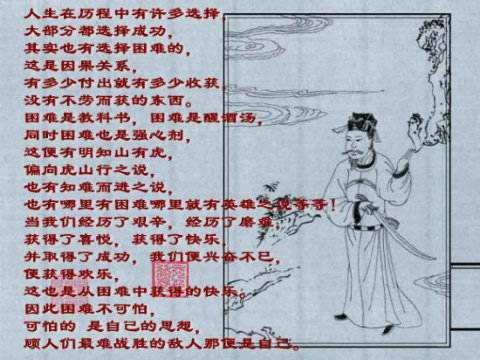 人生在历程中有许多选择，
大部分都选择成功，
其实也有选择困难的，
这是因果关系，
有多少付出就有多少收获，
没有不劳而获的东西。
困难是教科书，困难是醒酒汤，
同时困难也是强心剂，
这便有明知山有虎，
偏向虎山行之说，
也有知难而进之说，
也有哪里有困难哪里就有英雄之说等等！
当我们经历了艰辛，经历了磨难，
获得了喜悦，获得了快乐，
并取得了成功，我们便兴奋不已，
便获得欢乐，
这也是从困难中获得的快乐。
因此困难不可怕，
可怕的 是自己的思想，
顾人们最难战胜的敌人那便是自己。